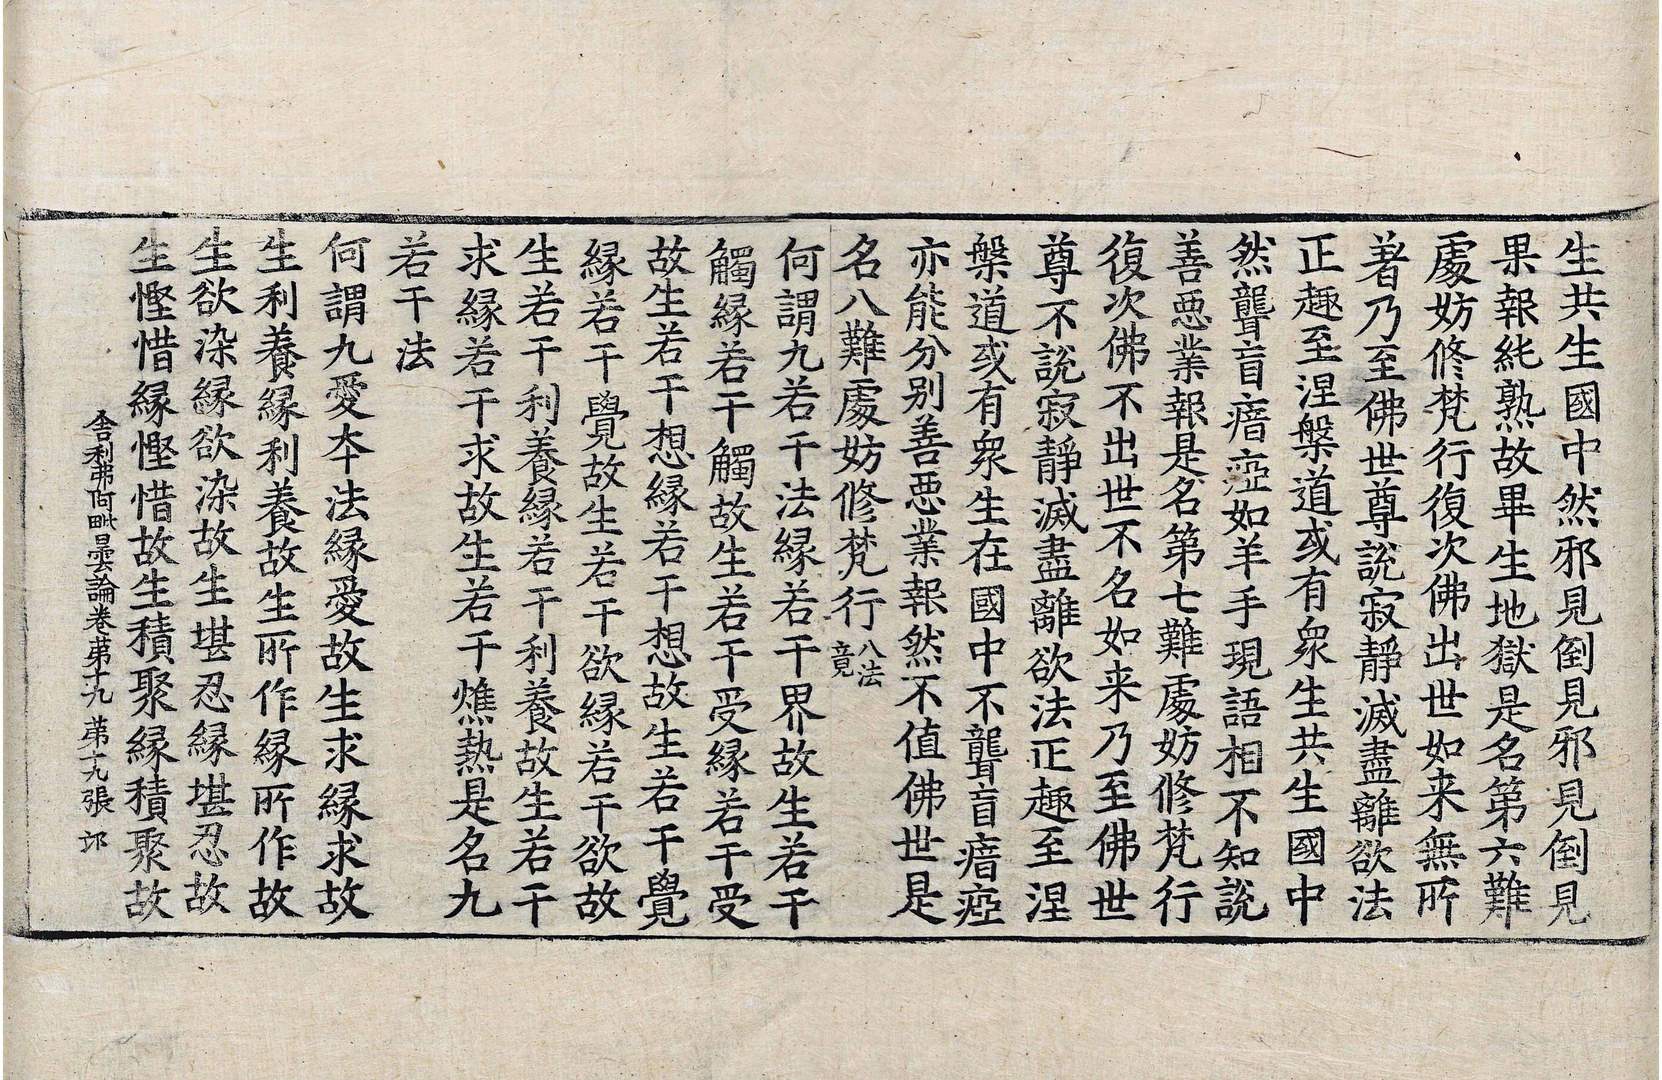 生共生國中然邪見倒見邪見倒見
果報純熟故畢生地獄是名第六難
處妨修梵行復次佛出世如来無所
著乃至佛世尊說寂靜滅盡離欲法
正趣至涅槃道或有衆生共生國中
然聾盲瘖瘂如羊手現語相不知說
善惡業報是名第七難處妨修梵行
復次佛不出世不名如来乃至佛世
尊不說寂靜滅盡離欲法正趣至涅
槃道或有衆生在國中不聾盲瘖瘂
亦能分别善惡業報然不值佛世是
名八難處妨修梵行八法竟
何謂九若干法緣若干界故生若干
觸緣若干觸故生若干受緣若干受
故生若干想緣若干想故生若干覺
緣若干覺故生若干欲緣若干欲故
生若干利養緣若干利養故生若干
求緣若干求故生若干燋熱是名九
若干法
何謂九愛本法緣愛故生求緣求故
生利養緣利養故生所作緣所作故
生欲染緣欲染故生堪忍緣堪忍故
生慳惜緣慳惜故生積聚緣積聚故
舍利弗阿毗曇論卷第十九 第十九張 邙